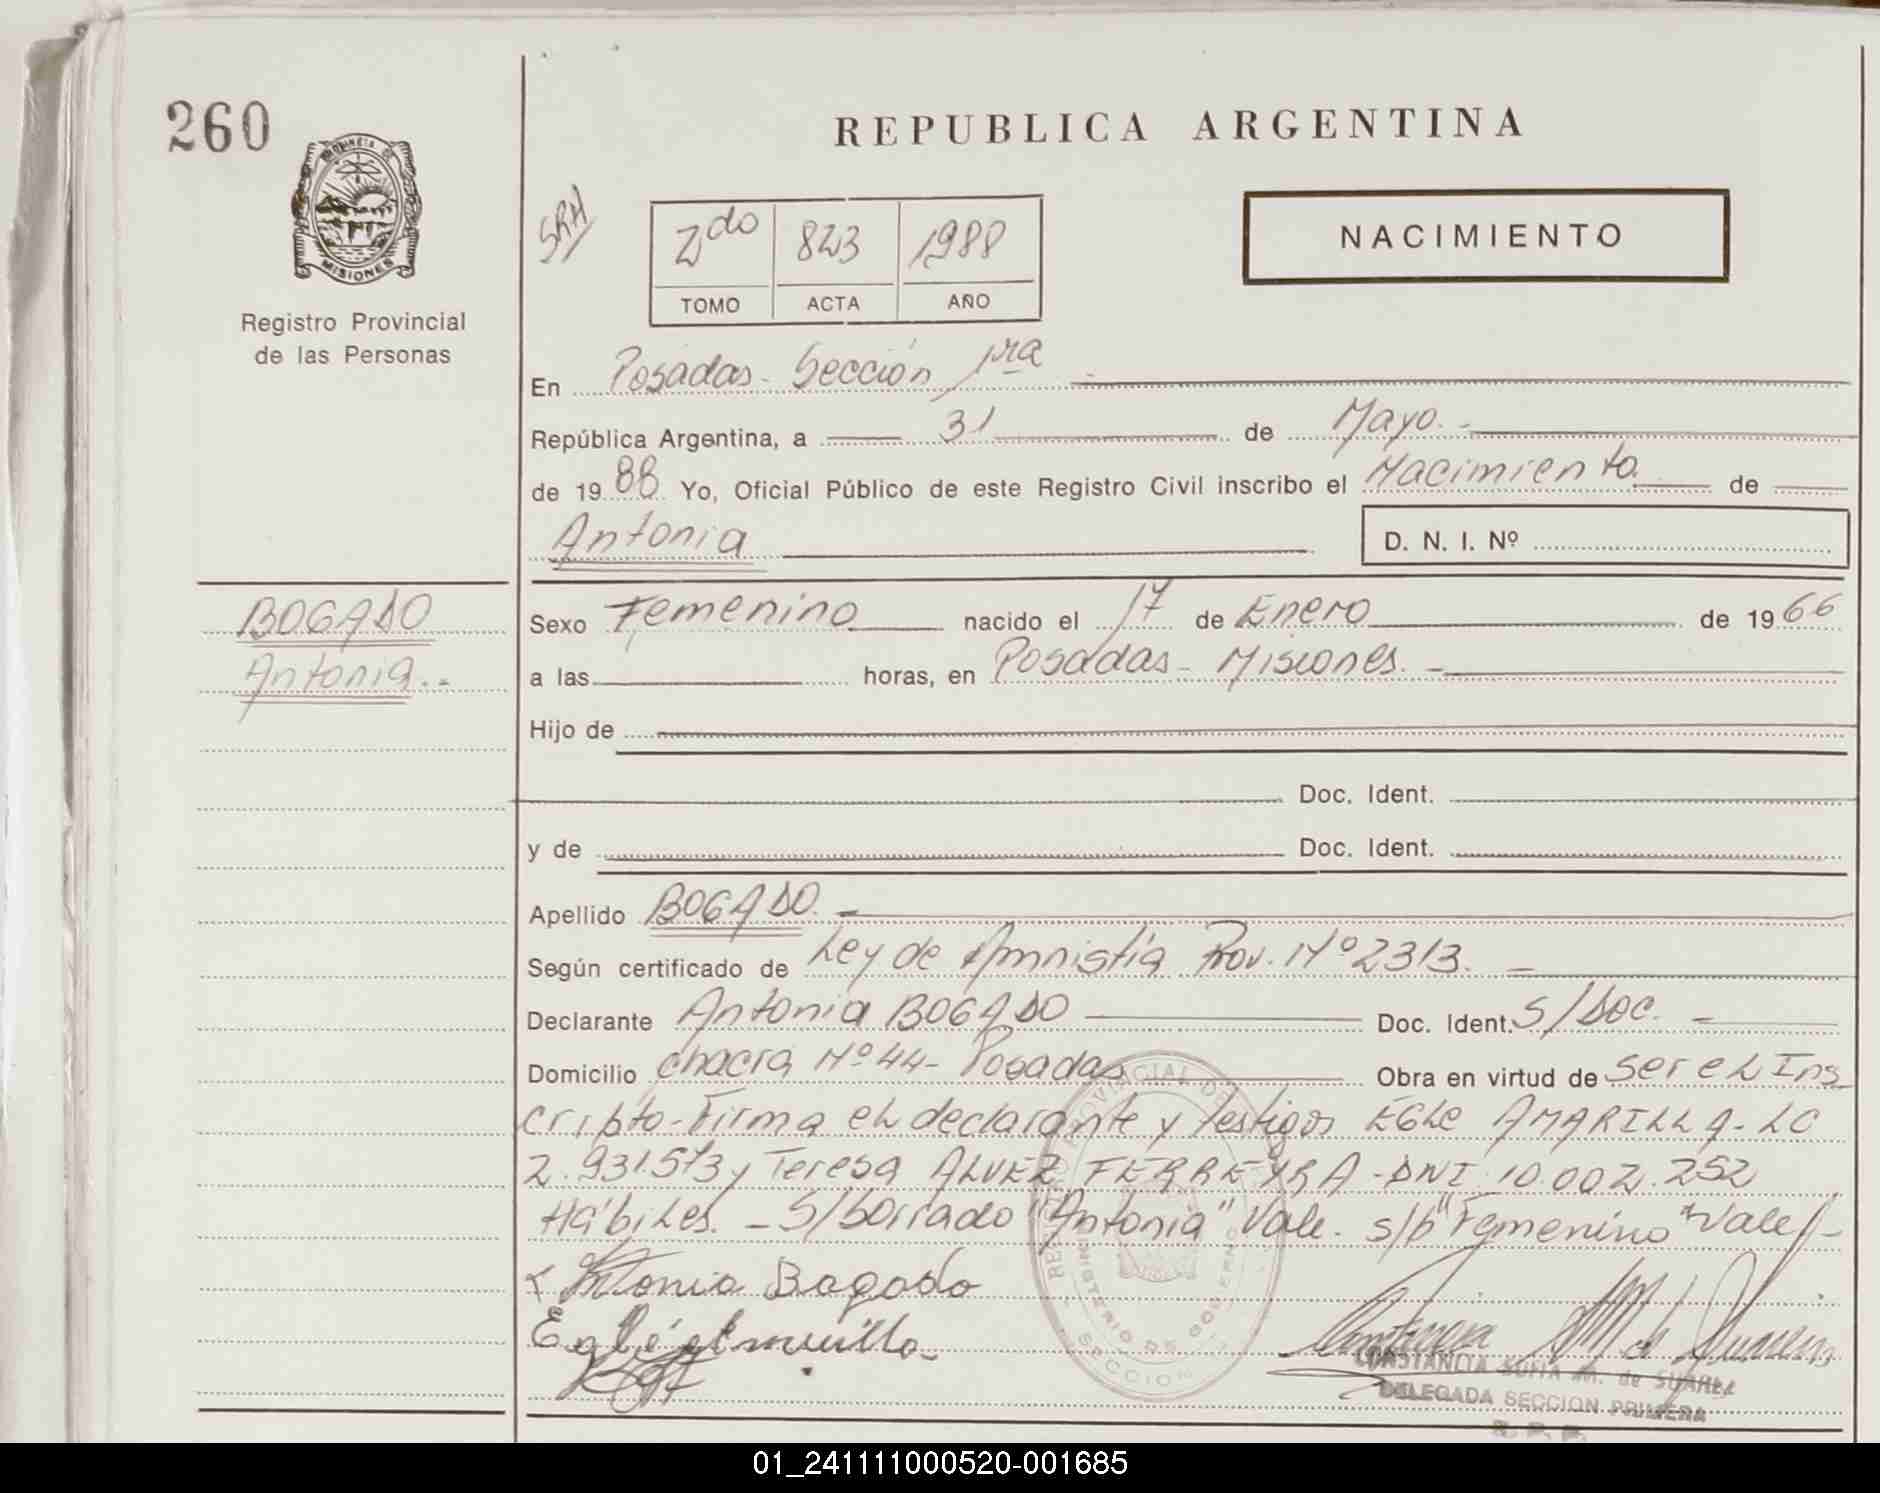 260
PROVINCIA DE
MISIONES
Registro Provincial
de las Personas
REPUBLICA ARGENTINA
SRH
2do 823 1988
TOMO ACTA AÑO
NACIMIENTO
En Posadas - Sección 1ra
República Argentina, a 31 de Mayo.-
de 1988 Yo, Oficial Público de este Registro Civil inscribo el Nacimiento de
Antonia
D. N. I. Nº
BOGADO
Antonia.-
Sexo Femenino nacido el 17 de Enero de 1966
a las horas, en Posadas - Misiones. -
Hijo de
Doc. Ident.
y de Doc. Ident.
Apellido BOGADO. -
Según certificado de Ley de Amnistía Prov. Nº 2313. -
Declarante Antonia BOGADO Doc. Ident. S/Doc. -
Domicilio chacra Nº 44 - Posadas Obra en virtud de ser el Ins
cripto - Firma el declarante y testigos EGLE AMARILLA - LC
2.931.573 y Teresa ALVEZ FERREYRA - DNI 10.002.252
Hábiles. - S/borrado "Antonia" Vale. s/b "Femenino" Vale/-
x Antonia Bogado
Eglé Amarilla
CONSTANCIA M. de SUAREZ
DELEGADA SECCION PRIMERA
R. P. P.
01_241111000520-001685